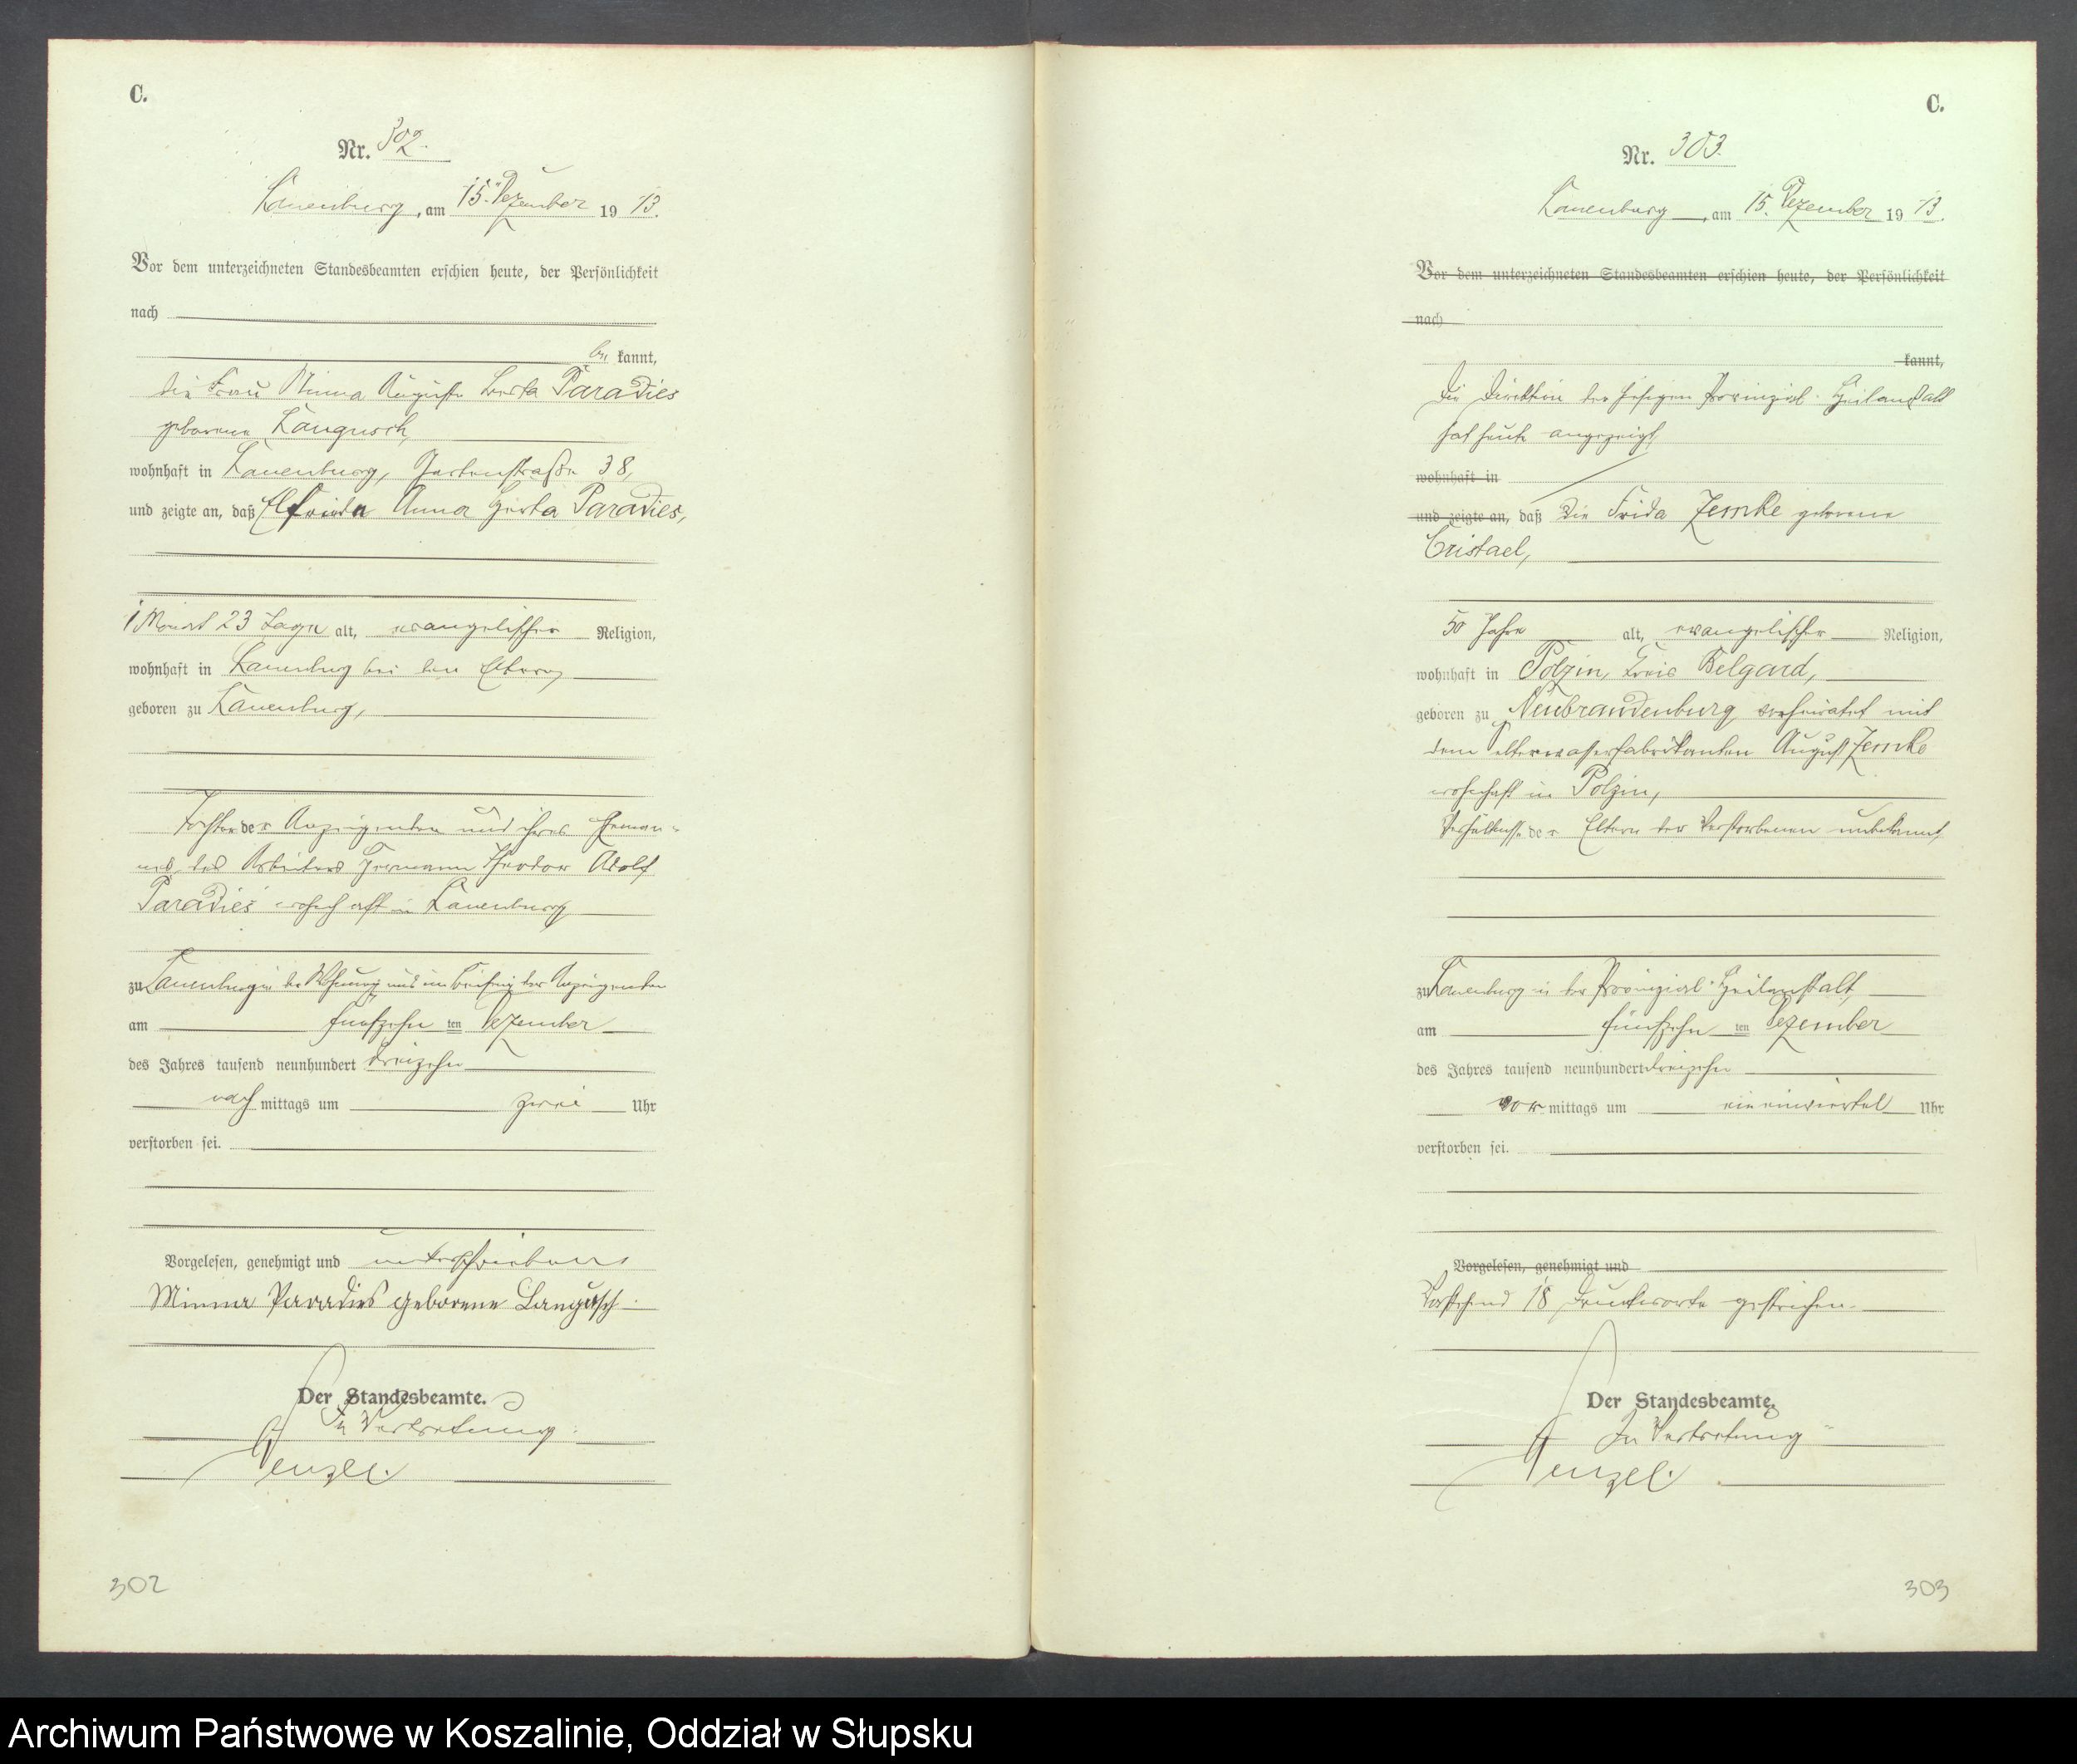 C.
Nr. 302.
Lauenburg, am 15. Dezember 19 13.
Vor dem unterzeichneten Standesbeamten erschien heute, der Persönlichkeit
nach
be kannt,
die Frau Minna Auguste Berta Paradies
geborene Langusch,
wohnhaft in Lauenburg, Gartenstraße 38,
und zeigte an, daß Elfrieda Anna Herta Paradies,
1 Monat 23 Tage alt, evangelischer Religion,
wohnhaft in Lauenburg bei den Eltern,
geboren zu Lauenburg,
Tochter der Anzeigenden und ihres Eheman-
nes, des Arbeiters Hermann Theodor Adolf
Paradies wohnhaft in Lauenburg
zu Lauenburg in der Wohnung und im Beisein der Anzeigenden
am fünfzehn ten Dezember
des Jahres tausend neunhundert dreizehn
nach mittags um zwei Uhr
verstorben sei.
Vorgelesen, genehmigt und unterschrieben
Minna Paradies geborene Langusch
Der Standesbeamte.
In Vertretung:
Wenzel.
302
C.
Nr. 303.
Lauenburg, am 15. Dezember 19 13.
Vor dem unterzeichneten Standesbeamten erschien heute, der Persönlichkeit
nach
kannt,
Die Direktion der hiesigen Provinzial-Heilanstalt
hat heute angezeigt,
wohnhaft in
und zeigte an, daß die Frida Zemke geborene
Cristael,
50 Jahre alt, evangelischer Religion,
wohnhaft in Polzin, Kreis Belgard,
geboren zu Neubrandenburg verheiratet mit
dem Selterwasserfabrikanten August Zemke
wohnhaft in Polzin,
Verhältnisse der Eltern der Verstorbenen unbekannt
zu Lauenburg in der Provinzial-Heilanstalt,
am fünfzehn ten Dezember
des Jahres tausend neunhundert dreizehn
vor mittags um ein einviertel Uhr
verstorben sei.
Vorgelesen, genehmigt und
Vorstehend 18 Druckworte gestrichen.
Der Standesbeamte.
In Vertretung
Wenzel.
303
Archiwum Państwowe w Koszalinie, Oddział w Słupsku